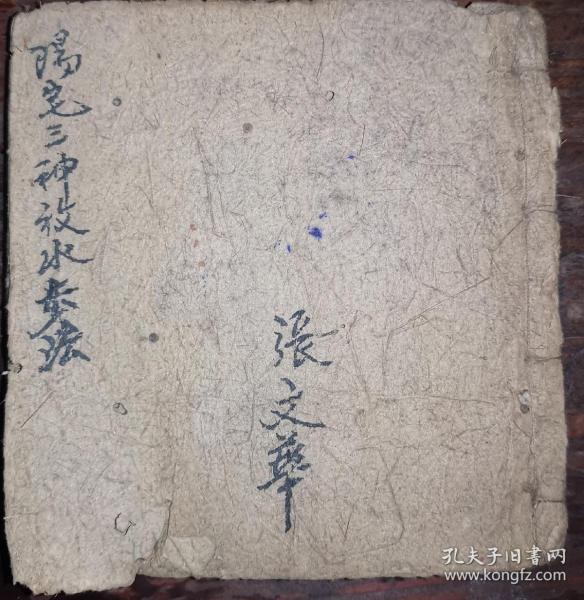 陽宅三种放水奥法
張文華
孔夫子旧书网
www.kongfz.com